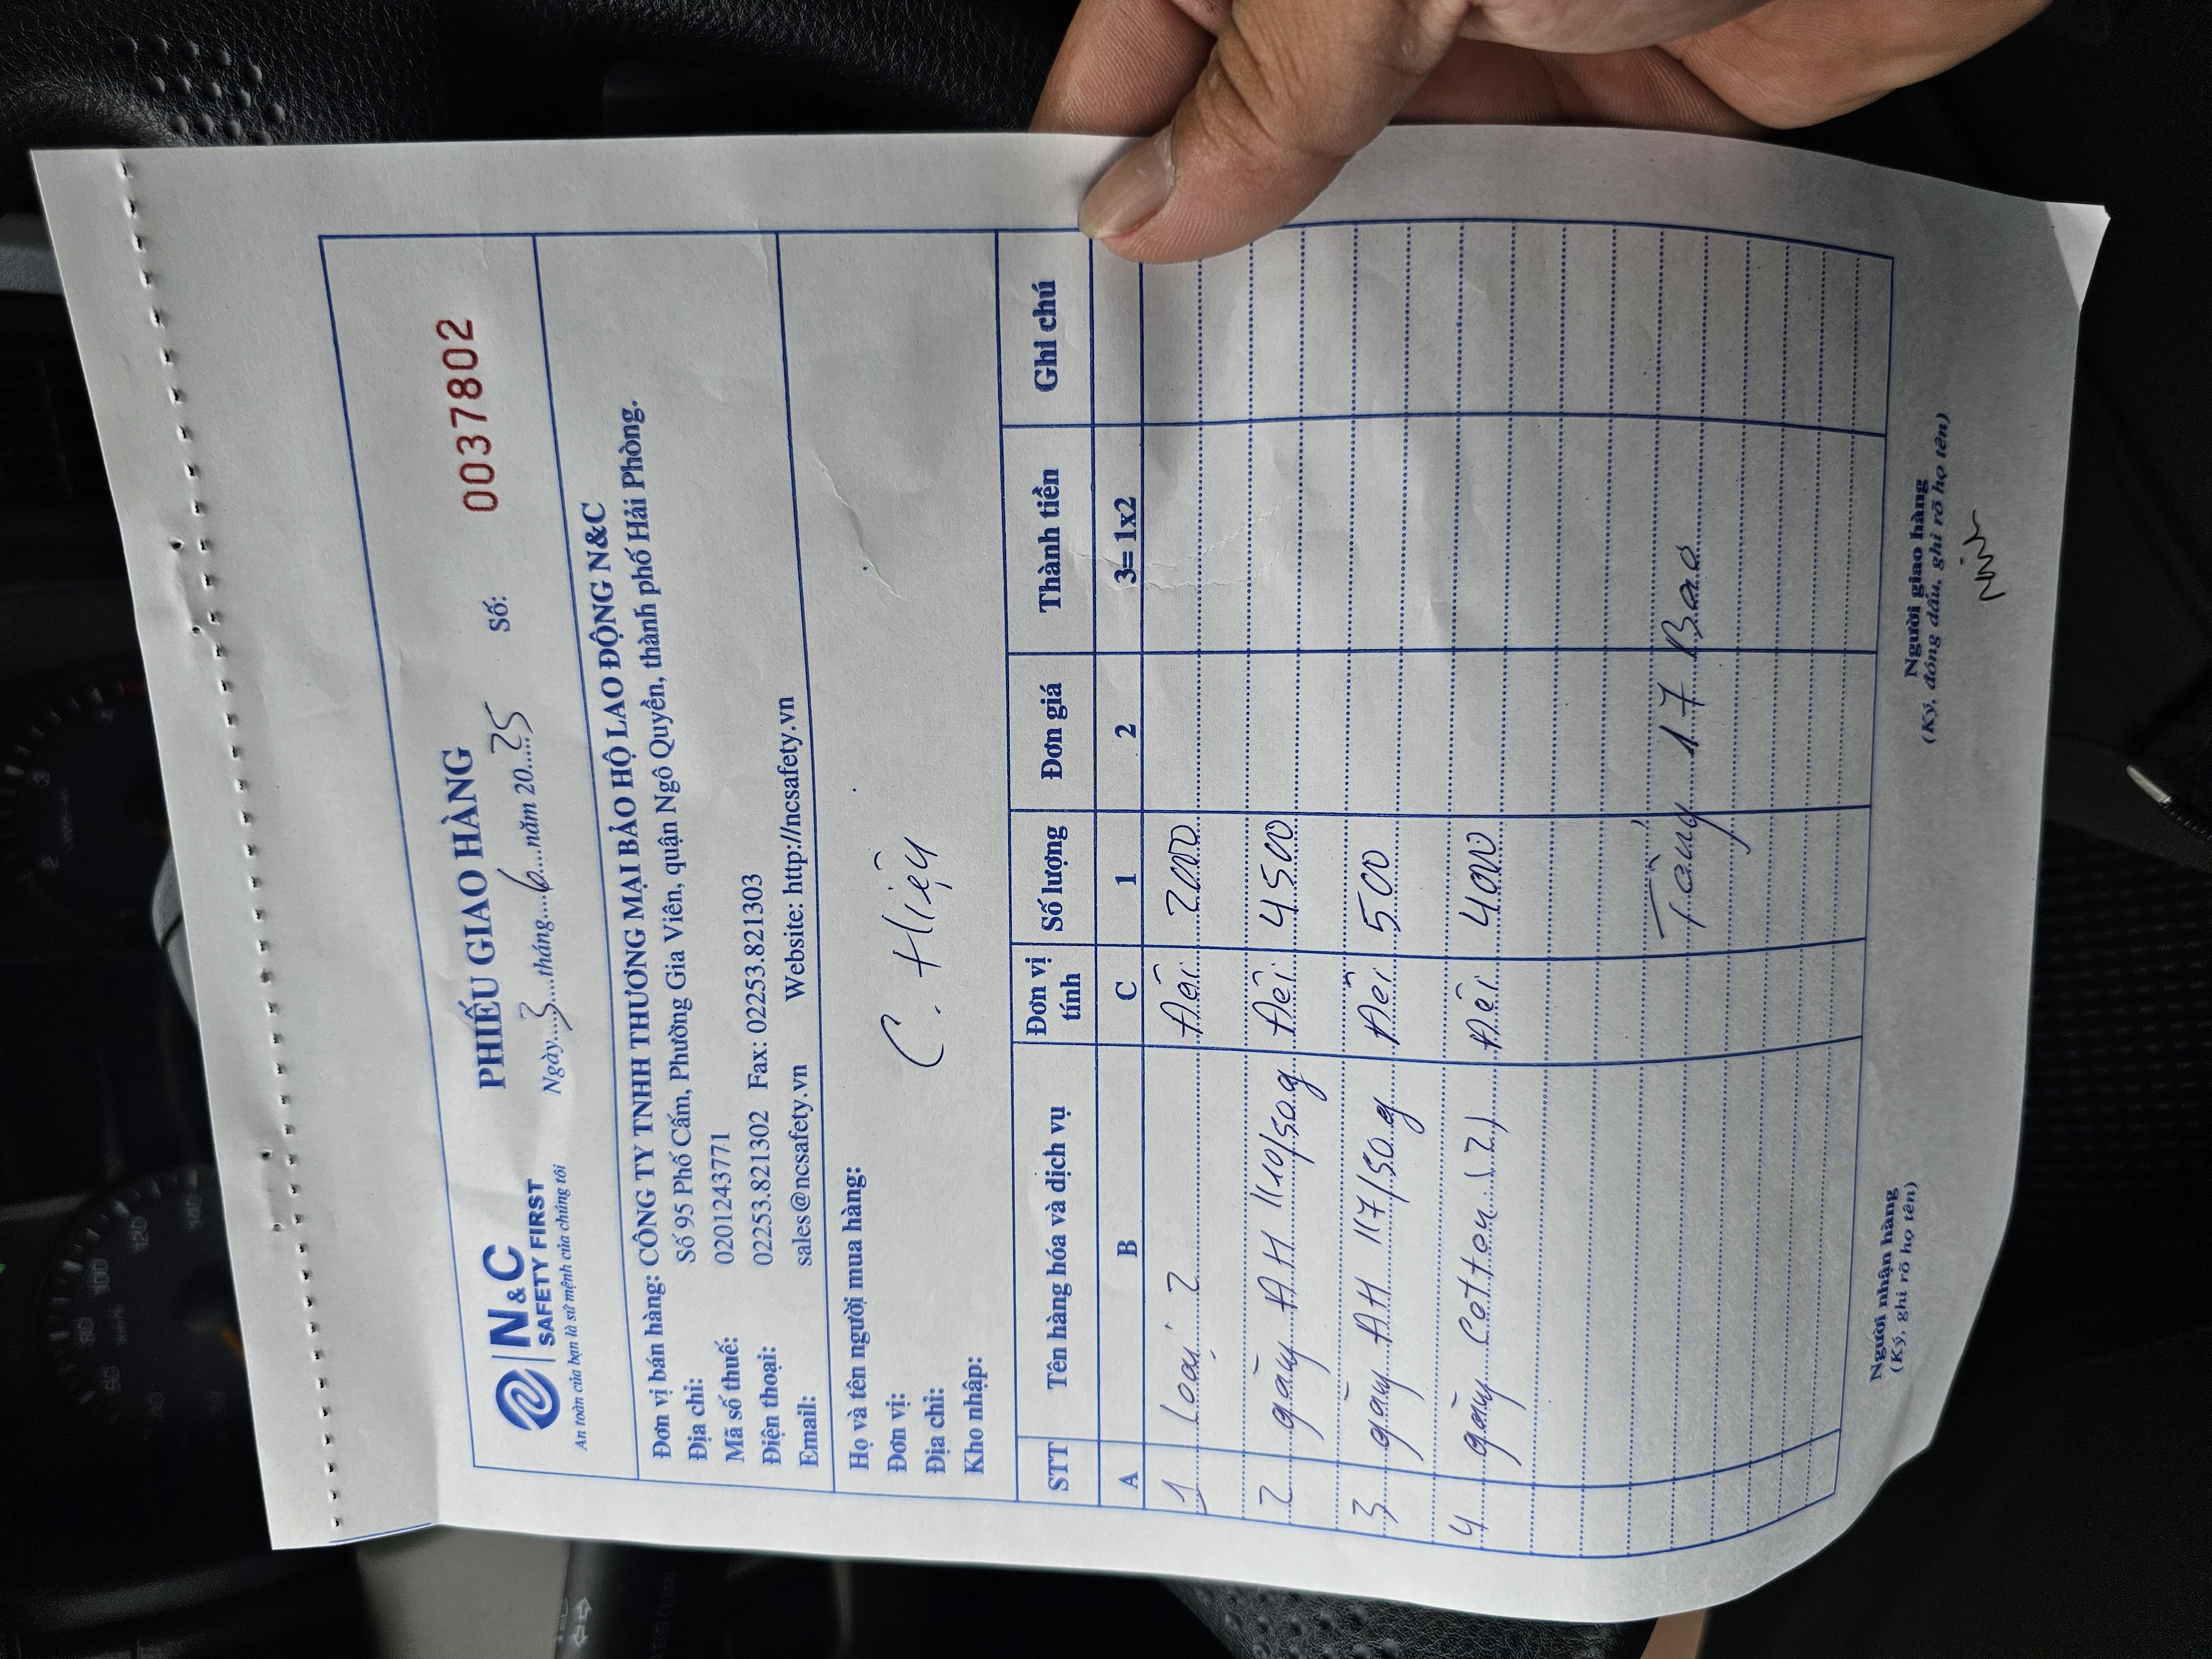 N&C
SAFETY FIRST
An toàn của bạn là sứ mệnh của chúng tôi
PHIẾU GIAO HÀNG
Ngày...3...tháng...6...năm 20...25 Số: 0037802
Đơn vị bán hàng: CÔNG TY TNHH THƯƠNG MẠI BẢO HỘ LAO ĐỘNG N&C
Địa chỉ: Số 95 Phố Cấm, Phường Gia Viên, quận Ngô Quyền, thành phố Hải Phòng.
Mã số thuế: 0201243771
Điện thoại: 02253.821302 Fax: 02253.821303
Email: sales@ncsafety.vn Website: http://ncsafety.vn
Họ và tên người mua hàng:
Đơn vị: C. Hiệu
Địa chỉ:
Kho nhập:
STT Tên hàng hóa và dịch vụ Đơn vị tính Số lượng Đơn giá Thành tiền Ghi chú
A B C 1 2 3= 1x2
1 Loại 2 Đôi 2000
2 găng AH 1110/50g Đôi 4500
3 găng AH 117/50g Đôi 500
4 găng Cotton (2) Đôi 4000
Tổng 17 Bao
Người nhận hàng Người giao hàng
(Ký, ghi rõ họ tên) (Ký, đóng dấu, ghi rõ họ tên)